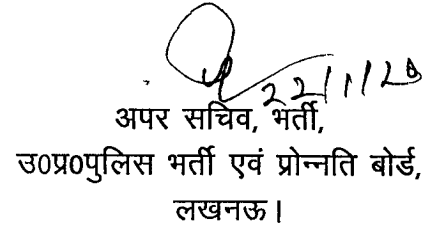 22/1/20
अपर सचिव, भर्ती,
उ0प्र0पुलिस भर्ती एवं प्रोन्नति बोर्ड,
लखनऊ।